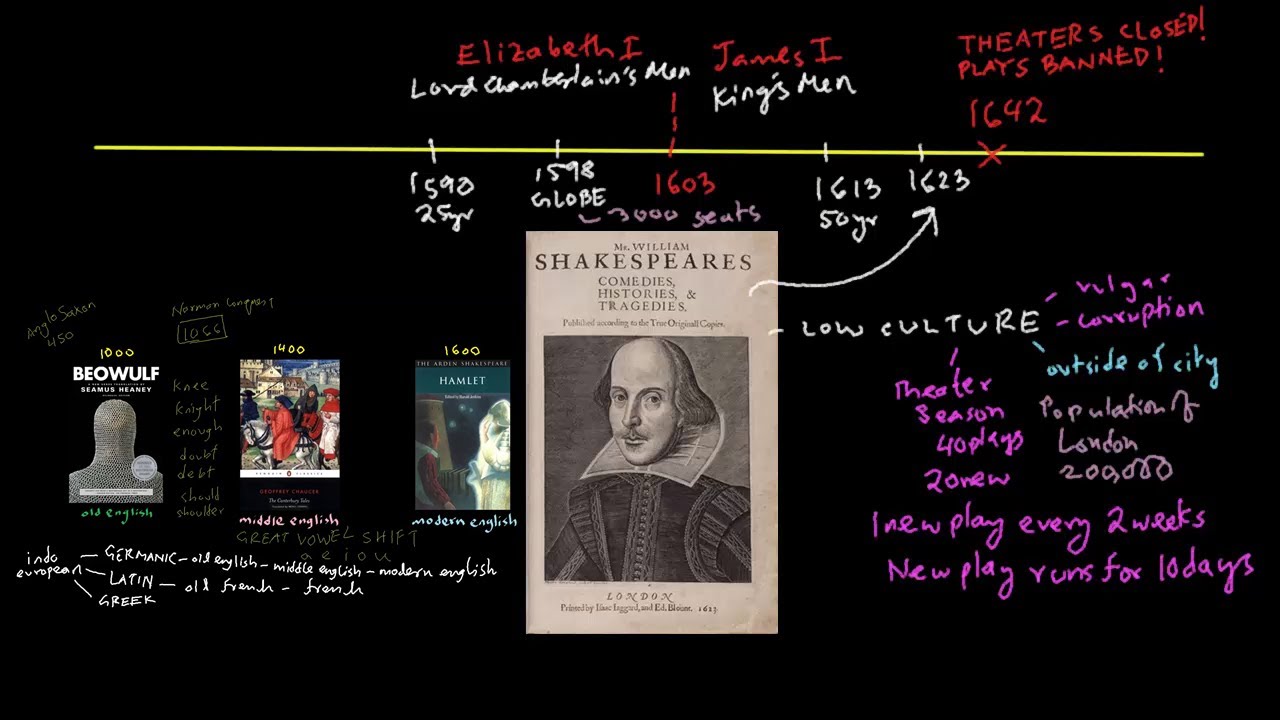 Elizabeth I
Lord Chamberlain's Men
James I
King's Men
THEATERS CLOSED!
PLAYS BANNED!
1642
1590
25yr
1598
GLOBE
~3000 seats
1603
1613
50yr
1623
Mr. WILLIAM
SHAKESPEARES
COMEDIES,
HISTORIES, &
TRAGEDIES.
Published according to the True Originall Copies.
LONDON
Printed by Isaac Iaggard, and Ed. Blount. 1623.
- LOW CULTURE
- vulgar
- corruption
outside of city
Theater
Season
40plays
20new
Population of
London
200,000
1 new play every 2 weeks
New play runs for 10 days
Anglo Saxon
450
Norman Conquest
1066
1000
BEOWULF
SEAMUS HEANEY
old english
knee
knight
enough
doubt
debt
should
shoulder
1400
PENGUIN CLASSICS
GEOFFREY CHAUCER
The Canterbury Tales
middle english
1600
THE ARDEN SHAKESPEARE
HAMLET
modern english
GREAT VOWEL SHIFT
a e i o u
indo
european
GERMANIC - old english - middle english - modern english
LATIN - old french - french
GREEK